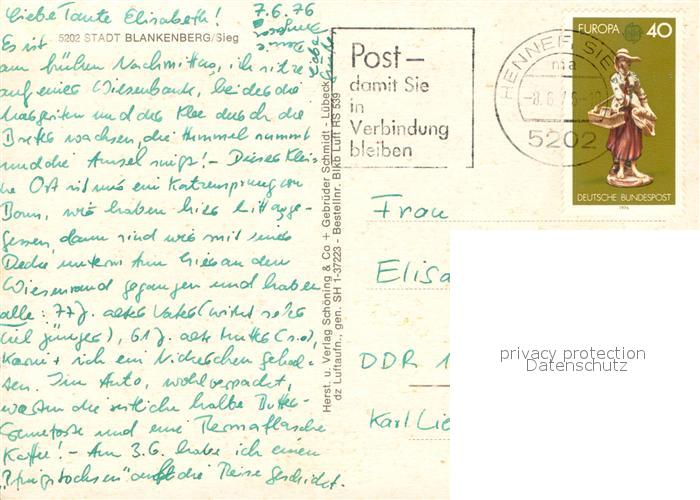 Liebe Tante Elisabeth! 7.6.76
5202 STADT BLANKENBERG/Sieg
Es ist
am frühen Nachmittag, ich sitze
auf einer Wiesenbank, bei der die
Margeriten und der Klee durch die
Bretter wachsen, die Hummel summt
und die Amsel singt! - Dieser klei-
ne Ort ist nur ein Katzensprung von
Bonn, wir haben hier Mittag ge-
gessen, dann sind wir mit einer
Decke unterm Arm hier an den
Wiesenrand gegangen und haben
alle: 77j. alter Vater (wirkt sehr
viel jünger), 61j. alte Mutter (s.o.),
Karin + ich ein Nickerchen gehal-
ten. Im Auto, wohl verpackt,
warten die restliche halbe Butter-
cremetorte und eine Thermoflasche
Kaffee! - Am 3.6. habe ich einen
"Pfingstochsen" auf die Reise geschickt.
Herst. u. Verlag Schöning & Co + Gebrüder Schmidt - Lübeck
dz Luftaufn., gen. SH 1-37223 - Bestellnr. Blkb Luft RS 539
Post-
damit Sie
in
Verbindung
bleiben
HENNEF SIEG
ma
-8.6.76-
5202
EUROPA 40
DEUTSCHE BUNDESPOST
1976
Frau
DDR 1
privacy protection
Datenschutz